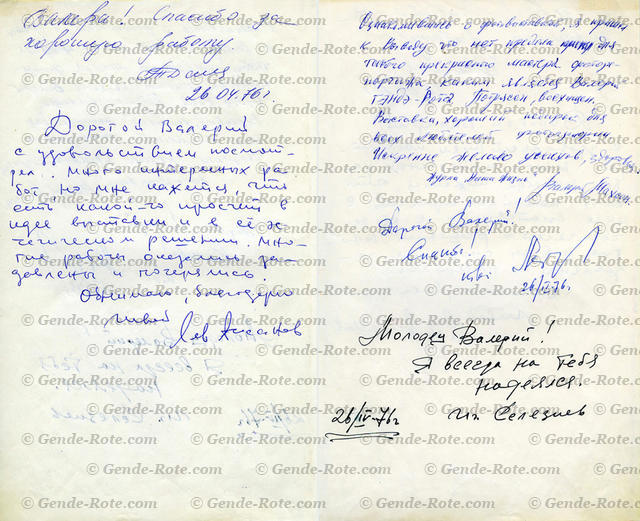 Валера! Спасибо за
хорошую работу.
26.04.76г.
Дорогой Валерий
с удовольствием посмот-
рел. Много интересных ра-
бот, но мне кажется, что
есть какой-то просчёт в
идее выставки и в её эс-
тетическом решении. Мно-
гие работы оказались за-
давлены и потерялись
Обнимаю, благодарю
твой Лев Ассанов
Ознакомившись с
к выводу что нет предела для
такого прекрасного мастера фоторе-
портажа каким является Валерий
Генде-Роте. Потрясен, восхищен.
Выставка, хороший подарок для
всех любителей фотографии
Искренне желаю успехов, здоровья
Дорогой Валерий!
Спасибо!
26/IV.76г.
Молодец Валерий!
Я всегда на тебя
надеялся.
Селезнев
26/IV-76г
© Gende-Rote.com